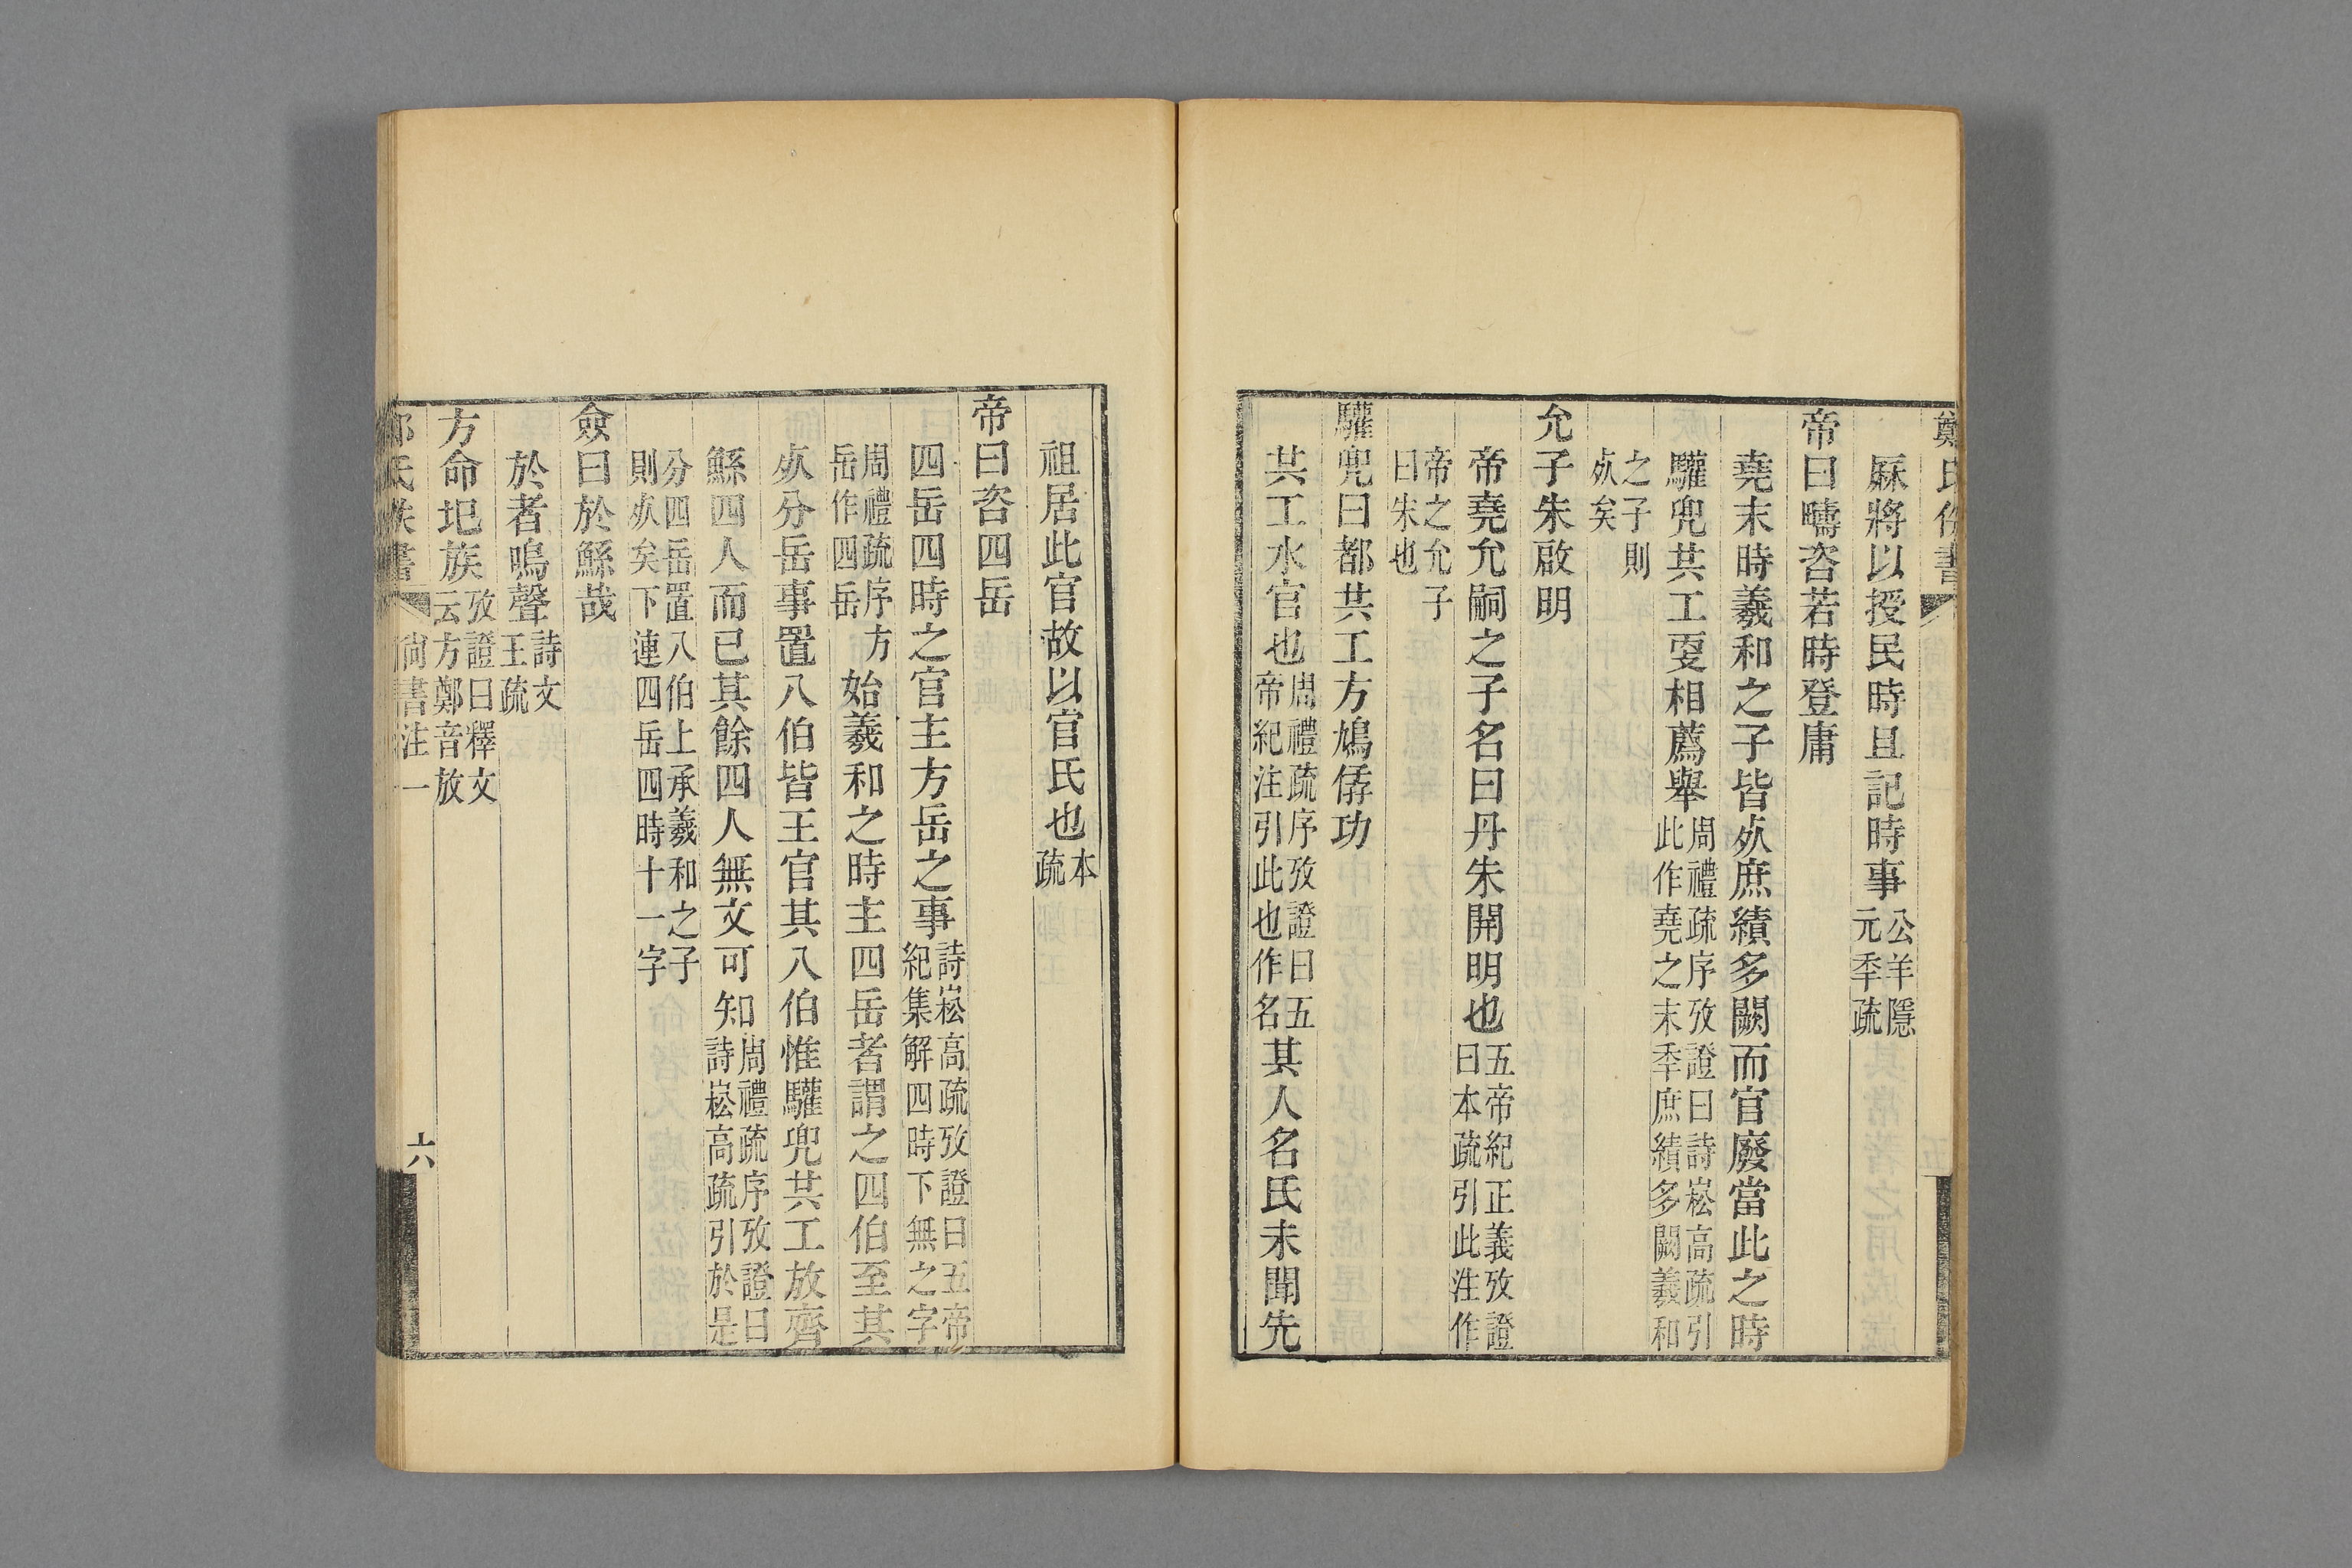 鄭氏佚書
厤將以授民時且記時事公羊隱元秊疏
帝曰疇咨若時登庸
堯末時羲和之子皆𣦸庶績多闕而官廢當此之時
驩兜共工㪅相薦舉周禮疏序攷證曰詩崧高疏引此作堯之末秊庶績多闕羲和
之子則𣦸矣
允子朱啟明
帝堯允嗣之子名曰丹朱開明也五帝紀正義攷證曰本疏引此注作
帝之允子曰朱也
驩兜曰都共工方鳩僝功
共工水官也周禮疏序攷證曰五帝紀注引此也作名其人名氏未聞先
祖居此官故以官氏也本疏
帝曰咨四岳
四岳四時之官主方岳之事詩崧高疏攷證曰五帝紀集解四時下無之字
周禮疏序方岳作四岳始羲和之時主四岳者謂之四伯至其
𣦸分岳事置八伯皆王官其八伯惟驩兜共工放齊
鯀四人而已其餘四人無文可知周禮疏序攷證曰詩崧高疏引於是
分四岳置八伯上承羲和之子則𣦸矣下連四岳四時十一字
僉曰於鯀哉
於者嗚聲詩文王疏
方命圯族攷證曰釋文云方鄭音放
氏佚書 尙書注一 六